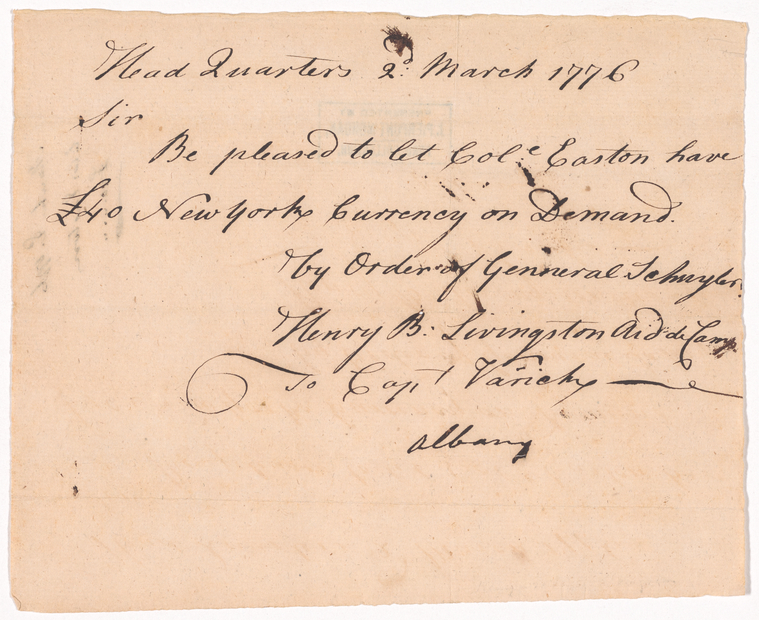 Head Quarters 2d: March 1776
Sir
Be pleased to let Cole Easton have
£40 New York Currency on Demand.
by Order of Genneral Schuyler.
Henry B: Livingston Aid de Camp
To Capt Varick
Albany